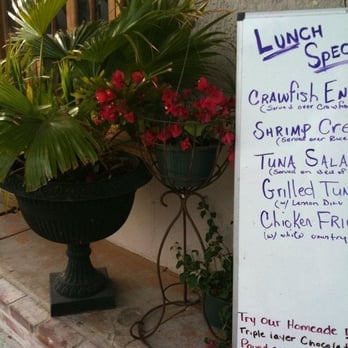 Lunch Spec
Crawfish En
(Served over Crawfis
Shrimp Cre
(Served over Rice
Tuna Sala
(Served on bed of
Grilled Tun
(w/ Lemon Dill
Chicken Fri
(w/ white country
Try Our Homeade
Triple Layer Chocolat
Pound